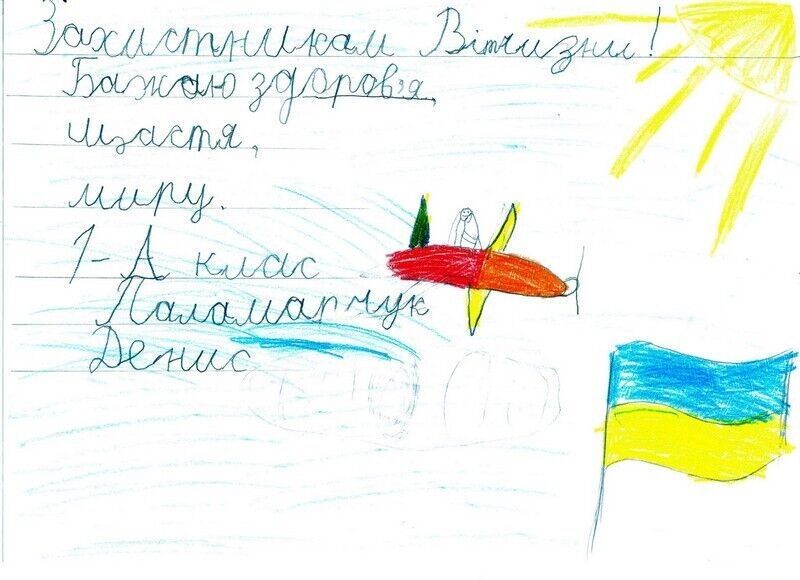 Захистникам Вітчизни!
Бажаю здоров'я,
щастя,
миру.
1-А клас
Паламарчук
Денис